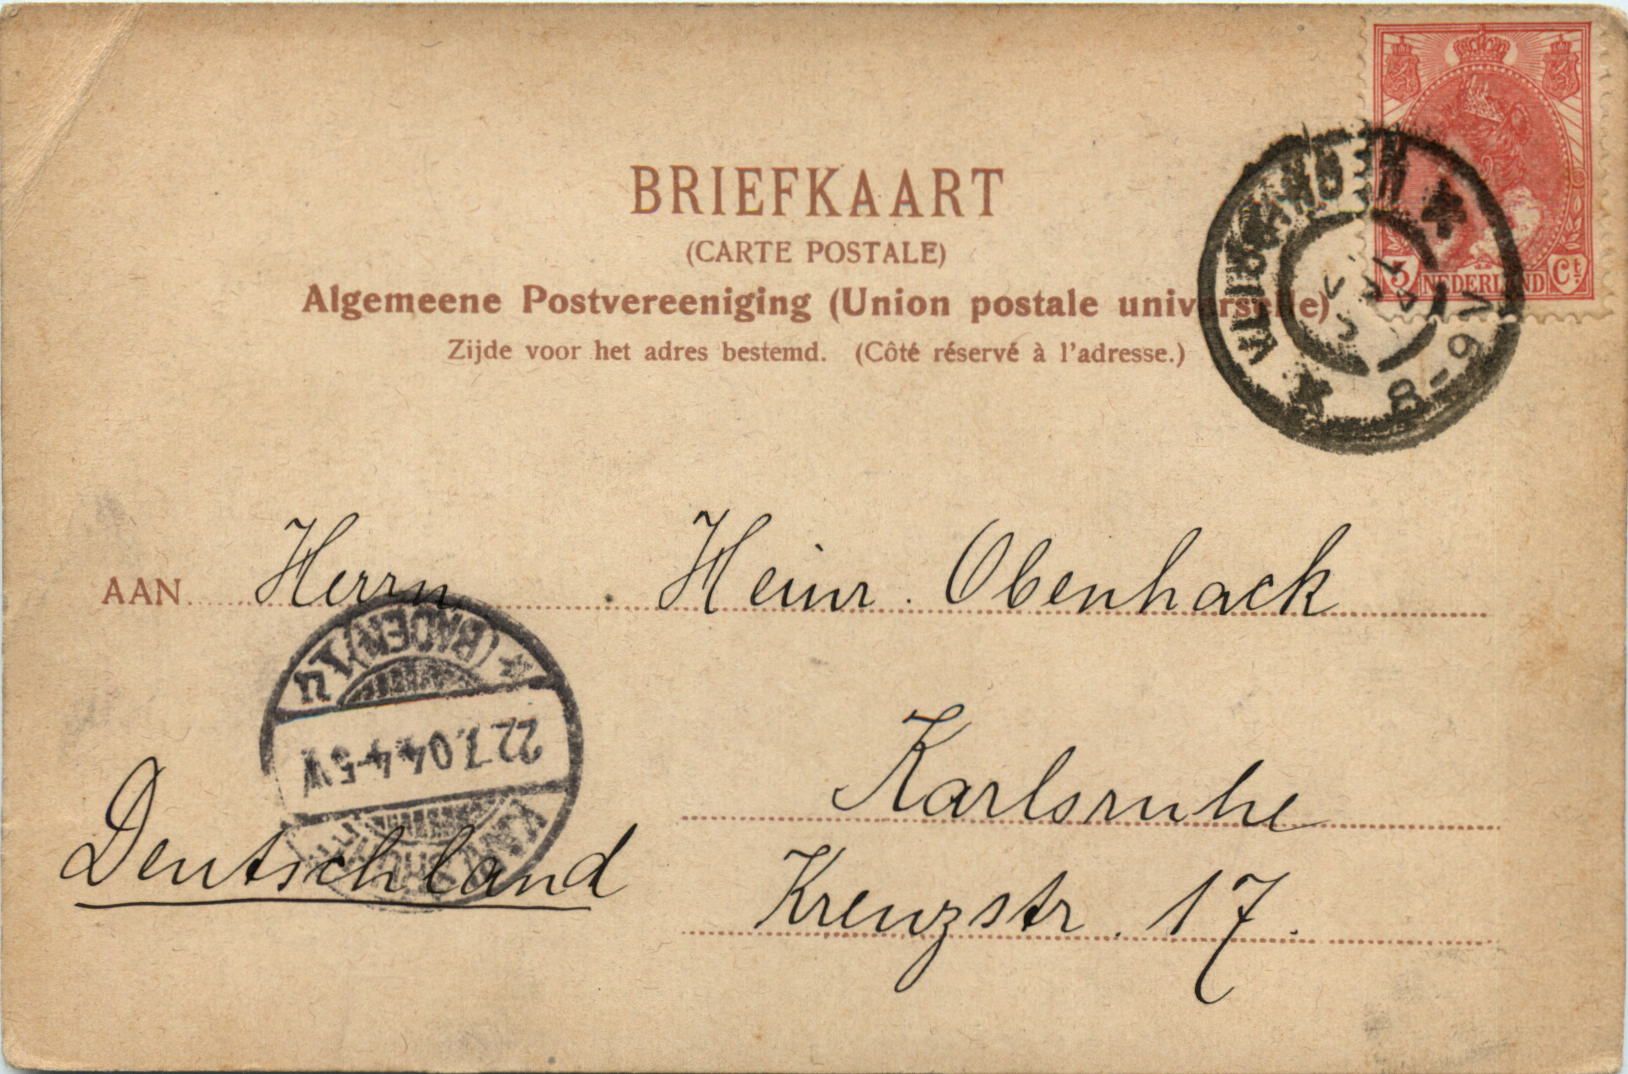 BRIEFKAART
(CARTE POSTALE)
Algemeene Postvereeniging (Union postale universelle)
Zijde voor het adres bestemd. (Côté réservé à l'adresse.)
5 NEDERLAND Ct
8-9V
AAN Herrn Heinr. Obenhack
(BADEN)
22.7.04.4-5V
Karlsruhe
Deutschland
Kreuzstr. 17.